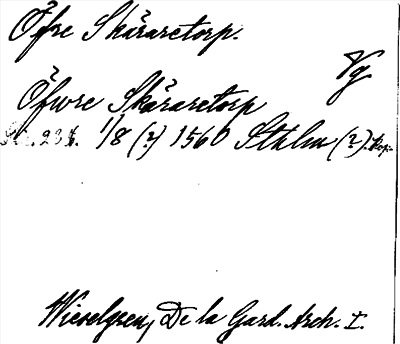 Öfre Skäraretorp.
Vg.
Öfvre Skäraretorp
1/8 (?) 1560 Sthlm (?). kop.
Wieselgren, De la Gard. Arch. I.